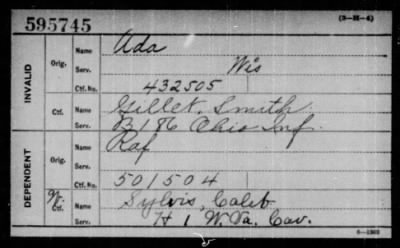 595745
(3-H-4)
INVALID
Orig.
Name
Ada
Serv.
Wis
Ctf. No.
432505
Ctf.
Name
Gillet, Smith
Serv.
B 186 Ohio Inf.
DEPENDENT
Orig.
Name
Raf
Serv.
Ctf. No.
501504
Ctf.
Name
Sylvis, Caleb
Serv.
H 1 W.Va. Cav.